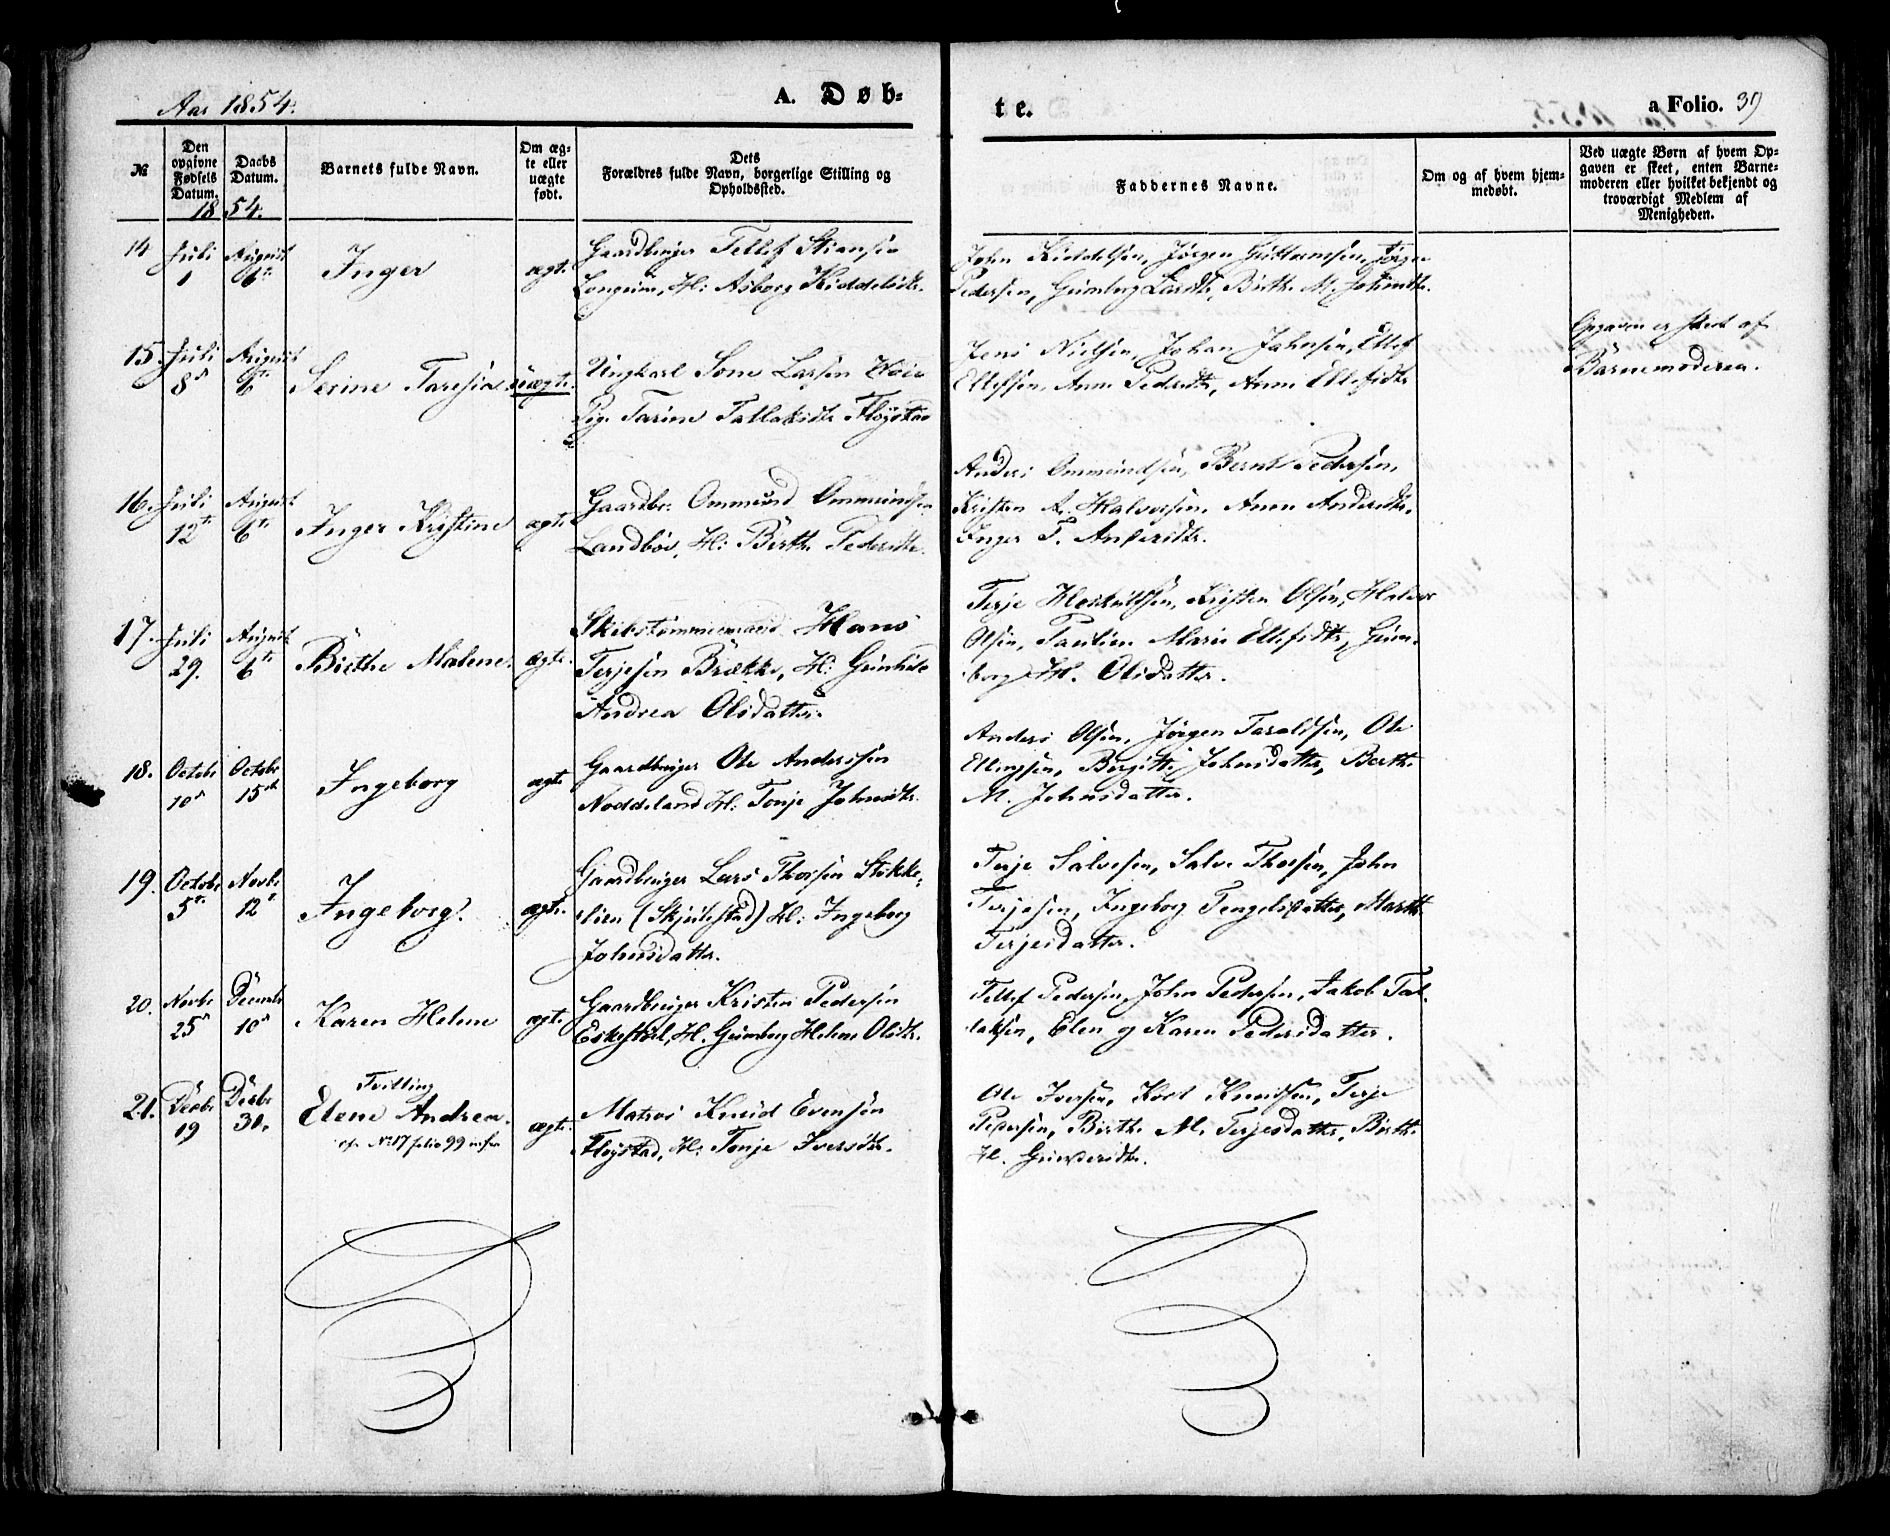 Aar 1854.
A. Døb-
te.
a Folio. 39
№
Den opgivne Fødsels Datum.
1854.
Daabs Datum.
Barnets fulde Navn.
Om æg-
te eller
uægte
født.
Dets
Forældres fulde Navn, borgerlige Stilling og
Opholdssted.
Faddernes Navne.
Om og af hvem hjem-
medøbt.
Ved uægte Børn af hvem Op-
gaven er skeet, enten Barne-
moderen eller hvilket bekjendt og
troværdigt Medlem af
Menigheden.
14 Juli August
1 6te
Inger
ægte
Gaardbruger Tellef Stiansen
Longeim, H: Asborg Kiddelsdtr.
John Kiddelsen, Jørgen Guttormsen, Jørgen
Pedersen, Gunborg Larsdtr, Birthe M. Johnsdtr.
15. Juli August
8de 6te
Serine Taresia
uægte
Ungkarl Som Larsen Høie
Pig. Tarine Tallaksdtr Fløystad
Jens Nielsen, Johan Johnsen, Ellef
Ellefsen, Anne Pedersdtr, Anne Ellefsdtr
Opgaven er skeet af
Barnemoderen.
16. Juli August
12te 6te
Inger Kristine
ægte
Gaardbr. Ommund Ommundsen
Landbøe, H: Birthe Pedersdtr.
Anders Ommundsen, Bernt Pedersen,
Kristen A. Halvorsen, Anne Andersdtr.
Inger T. Andersdtr.
17. Juli August
29. 6te
Birthe Malene.
ægte.
Skibstømmermand Hans
Terjesen Brække, H: Gunhild
Andrea Olsdatter.
Terje Hoskuldsen, Kristen Olsen, Halvor
Olsen, Pauline Marie Ellefsdtr, Gun-
borg H. Olsdatter.
18. Octobr Octobr
10de 15de
Ingeborg
ægte
Gaardbruger Ole Andersen
Noddeland H: Tonje Johnsdtr.
Anders Olsen, Jørgen Taraldsen, Ole
Ellingsen, Birgitte Johnsdatter, Berthe
M. Johnsdatter.
19. Octobr Novbr
5te 12te
Ingeborg.
ægte.
Gaardbruger Lars Thorsen Stokke-
lien (Skjulestad) H: Ingeborg
Johnsdatter.
Terje Salvesen, Salve Thorsen, John
Terjesen, Ingeborg Tengelsdatter, Marthe
Terjesdatter.
20. Novbr Decembr
25de 10de
Karen Helene
ægte
Gaardbruger Kristen Pedersen
Eskestöl, H. Gunborg Helene Olsdtr.
Tellef Pedersen, John Pedersen, Jakob Tal-
laksen, Elen og Karen Pedersdatter.
21. Decbr Decbr
19 31.
Tvilling
Elene Andrea.
cfr No 17 folio 99 infra
ægte.
Matros Knud Evensen
Fløystad, H: Tonje Iversdtr.
Ole Iversen, Kort Knudsen, Terje
Pedersen, Birthe M. Terjesdatter, Birthe
H. Gundersdtr.